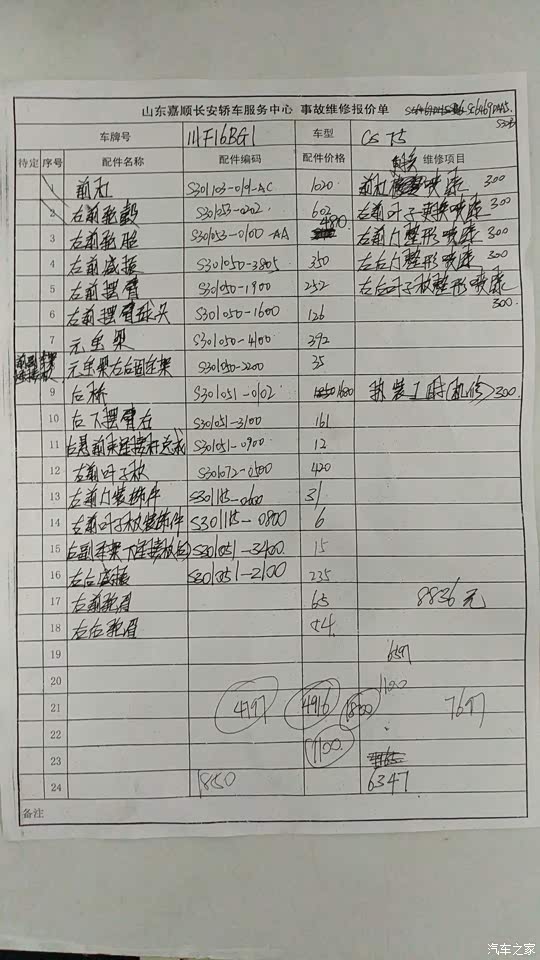 山东嘉顺长安轿车服务中心 事故维修报价单
车牌号 车型 CS 75
待定 序号 配件名称 配件编码 配件价格 维修项目
1 前杠 S301103-0101-AC 1020 前杠 喷漆 300
2 左前轮毂 S301053-0202 602 左前叶子 喷漆 300
3 左前轮胎 S301053-0100-AA 480 左前门整形喷漆 300
4 左前减振 S301050-3805 350 左后门整形喷漆 300
5 左前摆臂 S301050-1900 252 左后叶子板整形喷漆
300
6 左前摆臂球头 S301050-1600 126
7 元宝架 S301050-4100 392
8 元宝架左右固定架 S301050-2200 35
9 后桥 S301051-0102 1680 拆装工时(机修) 300
10 左下摆臂右 S301051-3100 161
11 S301051-0900 12
12 左前叶子板 S301072-0500 420
13 左前门装饰件 31
14 左前叶子板装饰件 S301185-0800 6
15 S301051-3400 15
16 左后减振 S301051-2100 235
17 左前轮眉 65 8836元
18 左后轮眉 54
19 6597
20 1100
21 4797 4916 1800 7697
22 1100
23
24 1850 6347
备注
汽车之家